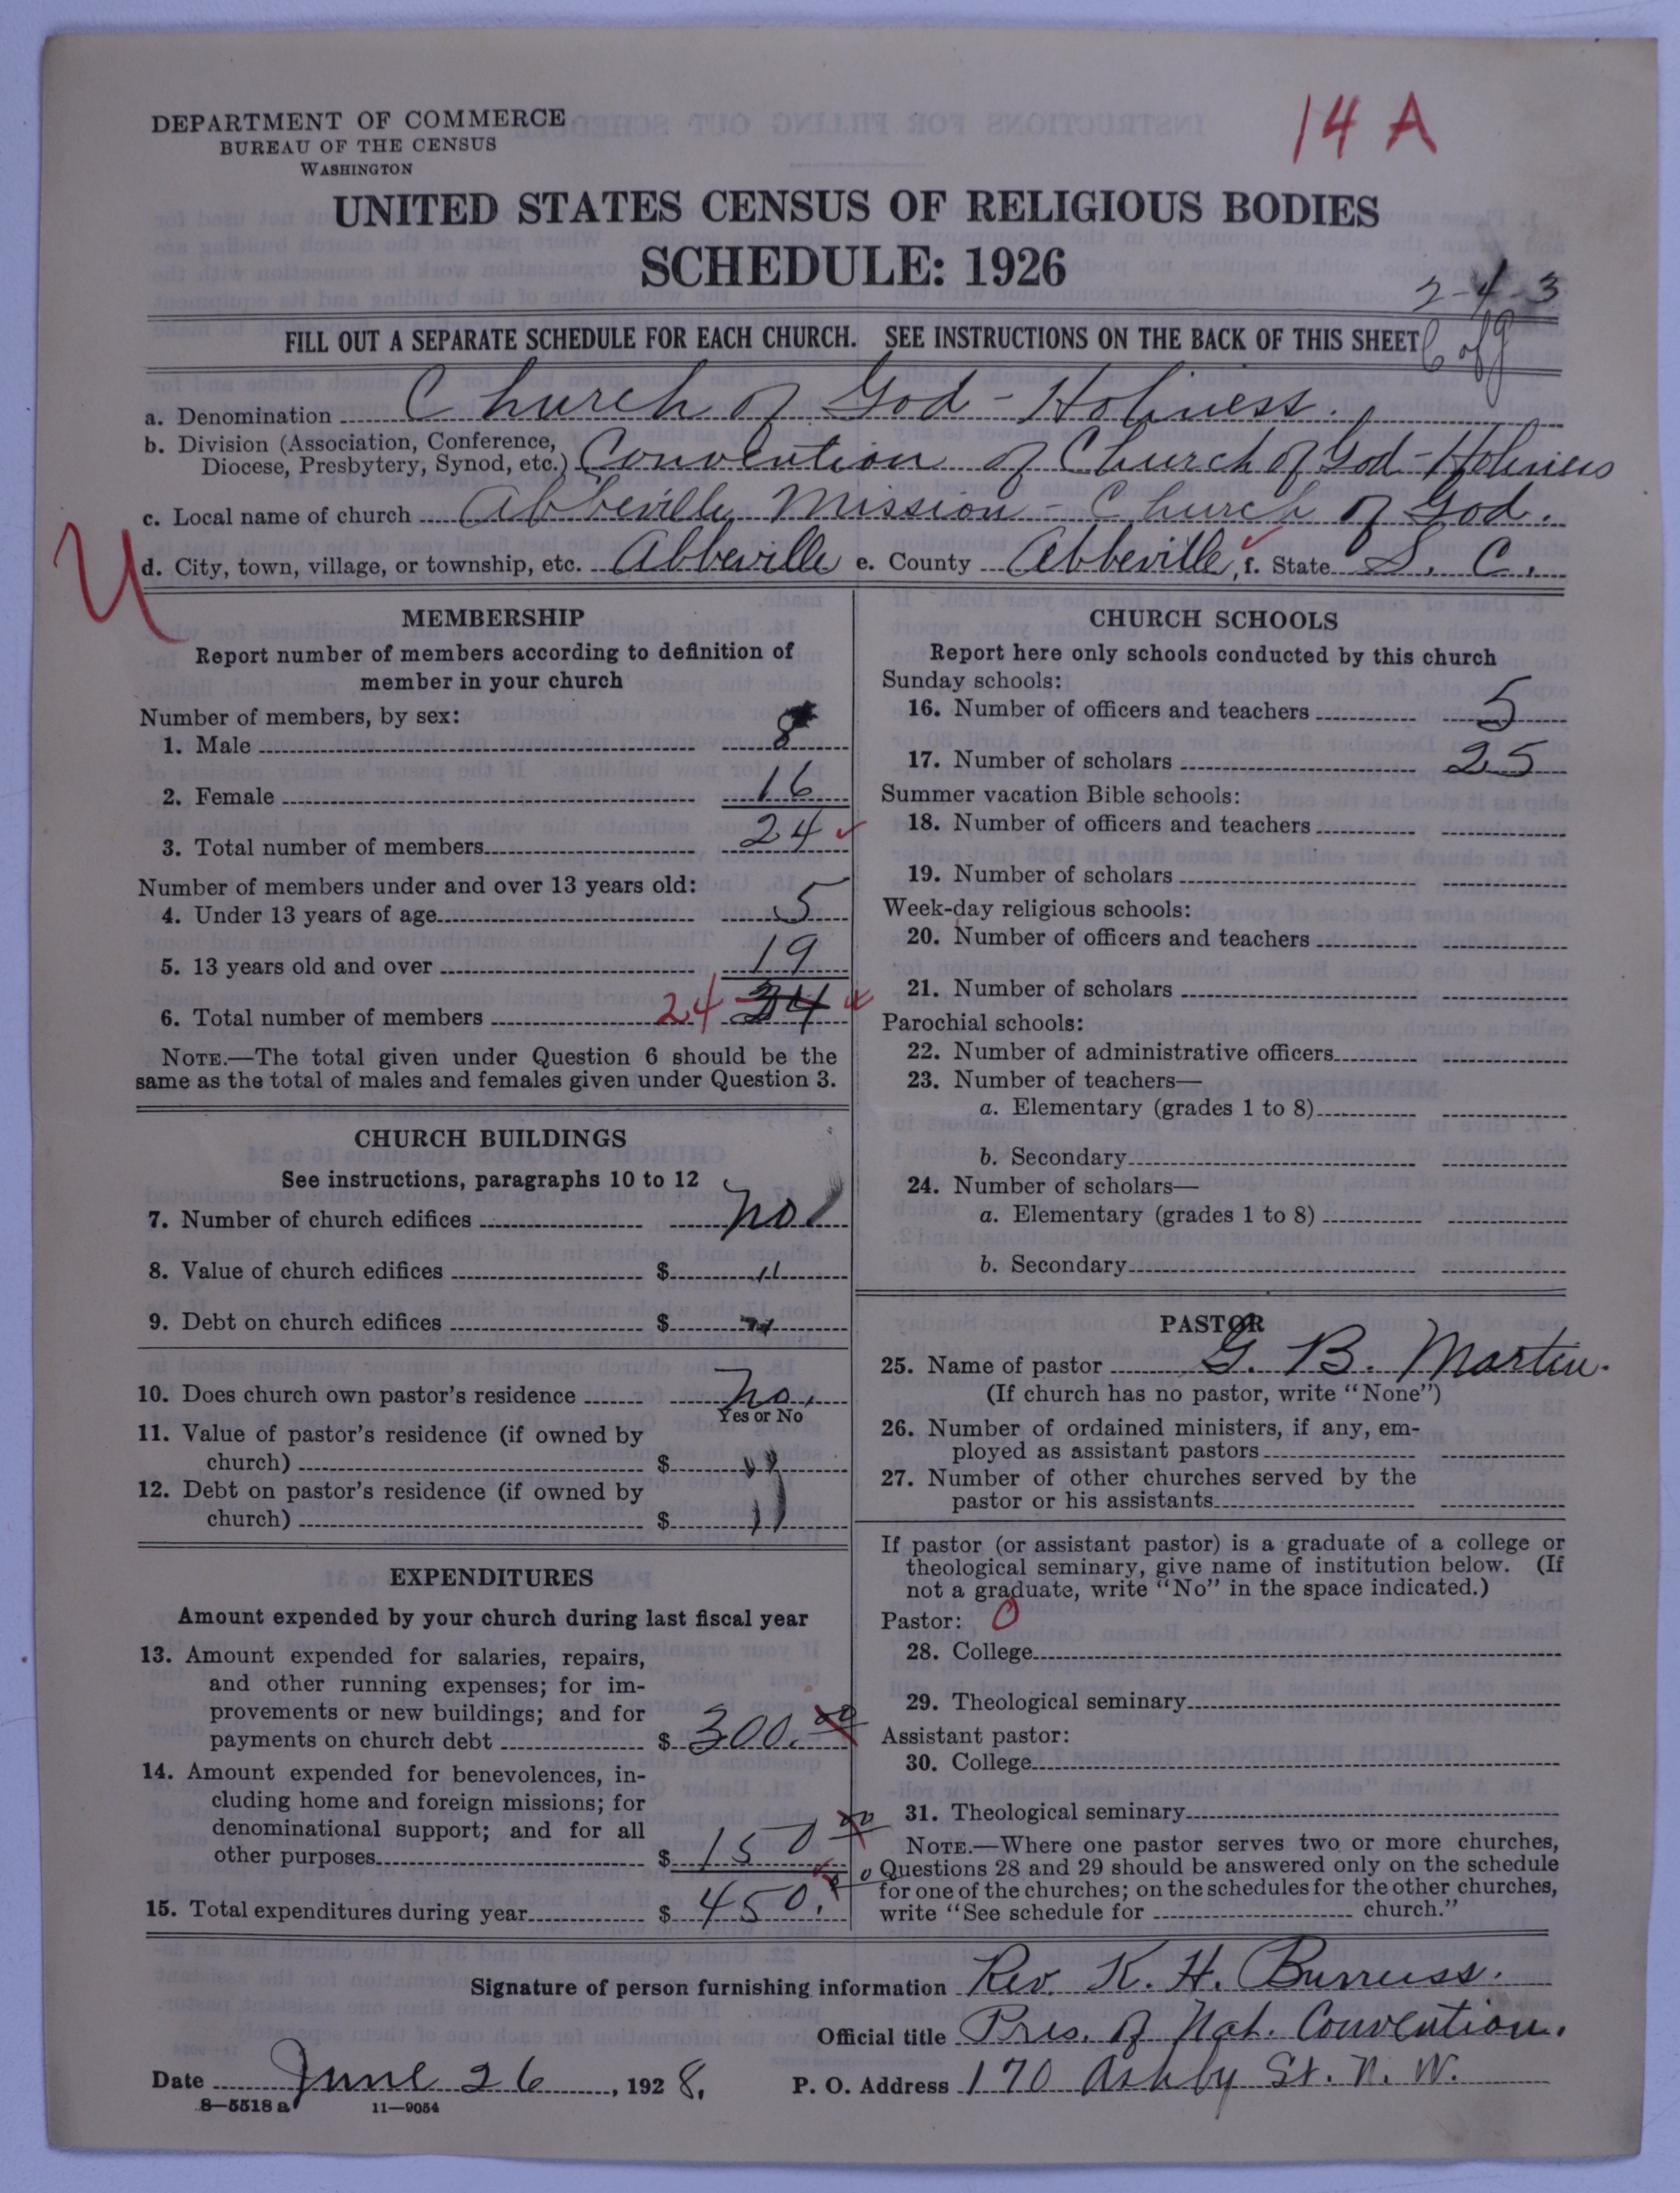 14 A
DEPARTMENT OF COMMERCE
BUREAU OF THE CENSUS
WASHINGTON
UNITED STATES CENSUS OF RELIGIOUS BODIES
SCHEDULE: 1926
2-4-3
FILL OUT A SEPARATE SCHEDULE FOR EACH CHURCH. SEE INSTRUCTIONS ON THE BACK OF THIS SHEET
a. Denomination Church of God - Holiness.
b. Division (Association, Conference,
Diocese, Presbytery, Synod, etc.) Convention of Church of God - Holiness
c. Local name of church Abbeville Mission - Church of God.
U
d. City, town, village, or township, etc. Abbeville e. County Abbeville, f. State S. C.
MEMBERSHIP
Report number of members according to definition of
member in your church
Number of members, by sex:
1. Male 8
2. Female 16
3. Total number of members 24
Number of members under and over 13 years old:
4. Under 13 years of age 5
5. 13 years old and over 19
6. Total number of members 24 34
NOTE.—The total given under Question 6 should be the
same as the total of males and females given under Question 3.
CHURCH BUILDINGS
See instructions, paragraphs 10 to 12
7. Number of church edifices no
8. Value of church edifices $ "
9. Debt on church edifices $ "
10. Does church own pastor's residence no.
Yes or No
11. Value of pastor's residence (if owned by
church) $ "
12. Debt on pastor's residence (if owned by
church) $ "
EXPENDITURES
Amount expended by your church during last fiscal year
13. Amount expended for salaries, repairs,
and other running expenses; for im-
provements or new buildings; and for
payments on church debt $ 300.00
14. Amount expended for benevolences, in-
cluding home and foreign missions; for
denominational support; and for all
other purposes $ 150 00
15. Total expenditures during year $ 450.00
CHURCH SCHOOLS
Report here only schools conducted by this church
Sunday schools:
16. Number of officers and teachers 5
17. Number of scholars 25
Summer vacation Bible schools:
18. Number of officers and teachers
19. Number of scholars
Week-day religious schools:
20. Number of officers and teachers
21. Number of scholars
Parochial schools:
22. Number of administrative officers
23. Number of teachers—
a. Elementary (grades 1 to 8)
b. Secondary
24. Number of scholars—
a. Elementary (grades 1 to 8)
b. Secondary
PASTOR
25. Name of pastor G. B. Martin.
(If church has no pastor, write "None")
26. Number of ordained ministers, if any, em-
ployed as assistant pastors
27. Number of other churches served by the
pastor or his assistants
If pastor (or assistant pastor) is a graduate of a college or
theological seminary, give name of institution below. (If
not a graduate, write "No" in the space indicated.)
Pastor: 0
28. College
29. Theological seminary
Assistant pastor:
30. College
31. Theological seminary
NOTE.—Where one pastor serves two or more churches,
Questions 28 and 29 should be answered only on the schedule
for one of the churches; on the schedules for the other churches,
write "See schedule for church."
Signature of person furnishing information Rev. K. H. Burruss.
Official title Pres. of Nat. Convention.
Date June 26, 1928. P. O. Address 170 Ashby St. N. W.
8—5518 a 11—9054